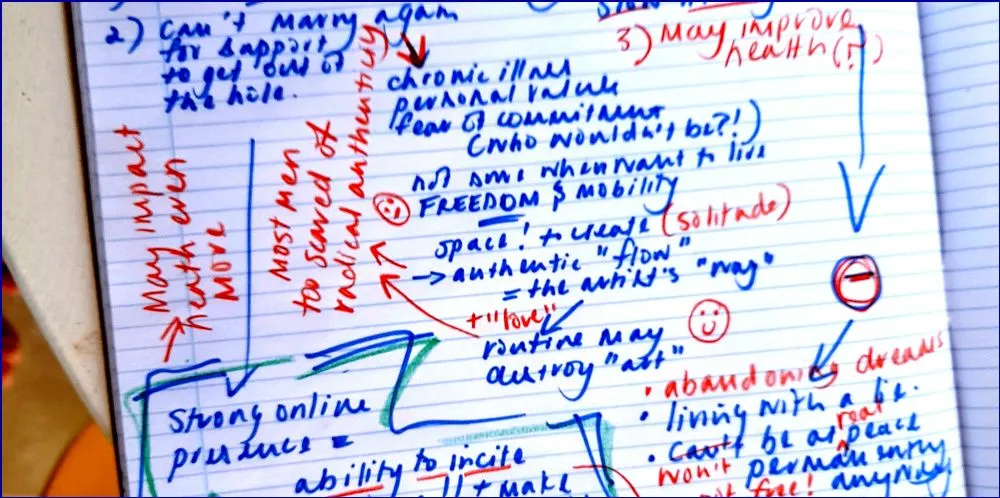 2) can't marry again
for support
to get out of
the hole.
3) May improve
health (?)
chronic illness
personal values
fear of commitment
(who wouldn't be?!)
not sure when want to live
FREEDOM & mobility
space! to create (solitude)
→ authentic "flow"
= the artist's "way"
+ "love"
routine may
destroy "art"
May impact
health even
more
Most men
too scared of
radical authenticity
Strong online
presence =
ability to incite
+ make
• abandoning dreams
• living with a lie.
• can't be at peace
real
won't permanently
not free! anyway